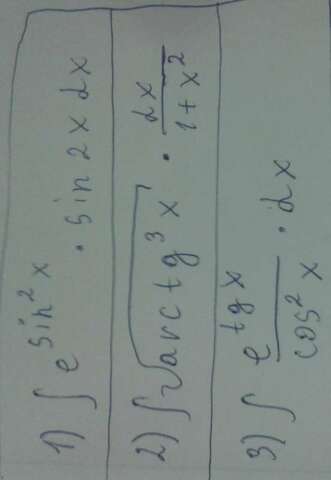 1) ∫ e^{sin² x} · sin 2x dx
2) ∫ √(arctg³ x) · dx/(1 + x²)
3) ∫ e^{tg x}/(cos² x) · dx